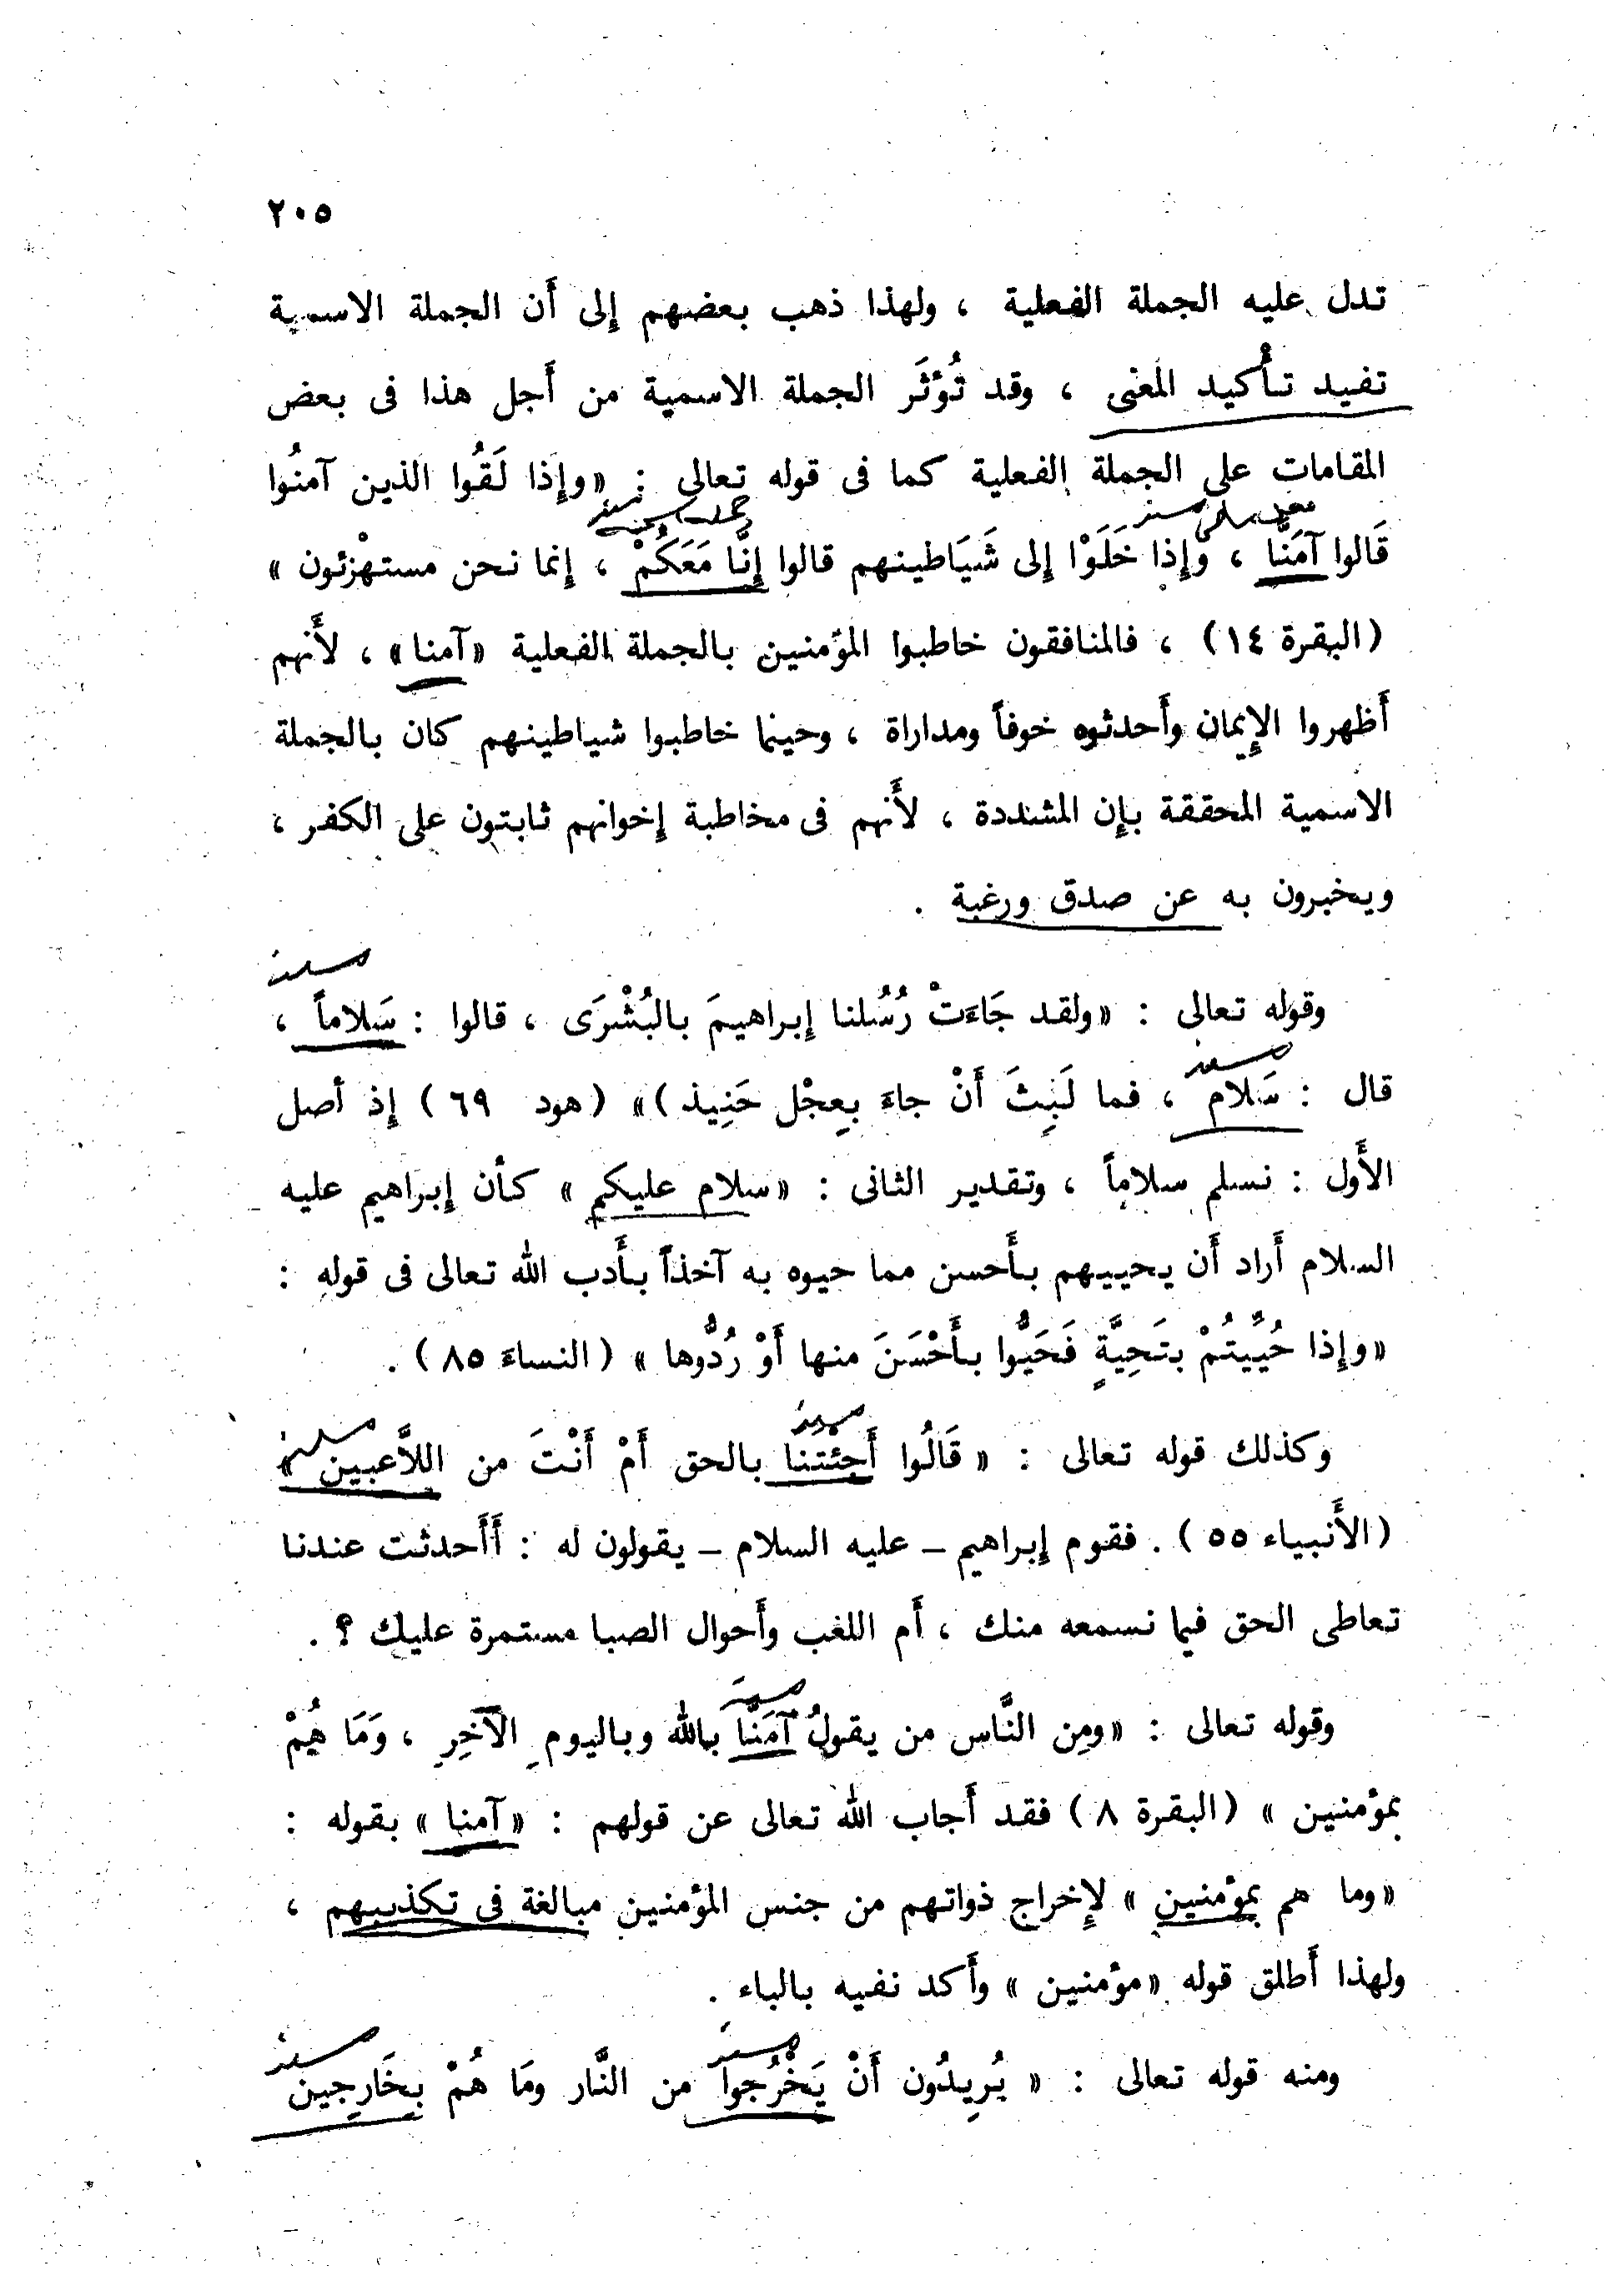 ٢٠٥
تدل عليه الجملة الفعلية ، ولهذا ذهب بعضهم إلى أَن الجملة الاسمية
تفيد تأْكيد المعنى ، وقد تُؤثَر الجملة الاسمية من أَجل هذا فى بعض
المقامات على الجملة الفعلية كما فى قوله تعالى : «وإِذا لَقُوا الذين آمنُوا
قَالوا آمَنَّا ، وإِذا خَلَوْا إِلى شَيَاطينهم قالوا إِنَّا مَعَكُمْ ، إِنما نحن مستهْزئون »
(البقرة ١٤) ، فالمنافقون خاطبوا المؤمنين بالجملة الفعلية «آمنا» ، لأَنهم
أَظهروا الإِيمان وأَحدثوه خوفاً ومداراة ، وحينما خاطبوا شياطينهم كان بالجملة
الاسمية المحققة بإِن المشددة ، لأَنهم فى مخاطبة إِخوانهم ثابتون على الكفر ،
ويخبرون به عن صدق ورغبة .
وقوله تعالى : «ولقد جَاءَتْ رُسُلنا إِبراهيمَ بالبُشْرَى ، قالوا : سَلاماً ،
قال : سَلام ، فما لَبِثَ أَنْ جاءَ بِعِجْل حَنِيذ )» (هود ٦٩) إِذ أصل
الأَول : نسلم سلاماً ، وتقدير الثانى : «سلام عليكم » كأن إِبراهيم عليه
السلام أَراد أَن يحييهم بأَحسن مما حيوه به آخذاً بأَدب الله تعالى فى قوله :
«وإِذا حُيِّيتُمْ بتَحِيَّةٍ فَحَيُّوا بأَحْسَنَ منها أَوْ رُدُّوها » (النساءَ ٨٥) .
وكذلك قوله تعالى : « قَالُوا أَجئتنا بالحق أَمْ أَنْتَ من اللاَّعبين »
(الأَنبياء ٥٥) . فقوم إِبراهيم – عليه السلام – يقولون له : أَأَحدثت عندنا
تعاطى الحق فيما نسمعه منك ، أَم اللعب وأَحوال الصبا مستمرة عليك ؟ .
وقوله تعالى : «ومِن النَّاس من يقولُ آمَنَّا بالله وباليوم الآخِرِ ، وَمَا هُمْ
بمؤمنين » (البقرة ٨) فقد أَجاب الله تعالى عن قولهم : «آمنا » بقوله :
«وما هم بمؤمنين » لإِخراج ذواتهم من جنس المؤمنين مبالغة فى تكذيبهم ،
ولهذا أَطلق قوله «مؤمنين » وأَكد نفيه بالباء .
ومنه قوله تعالى : « يُرِيدُون أَنْ يَخْرُجوا من النَّار ومَا هُمْ بِخَارِجِين